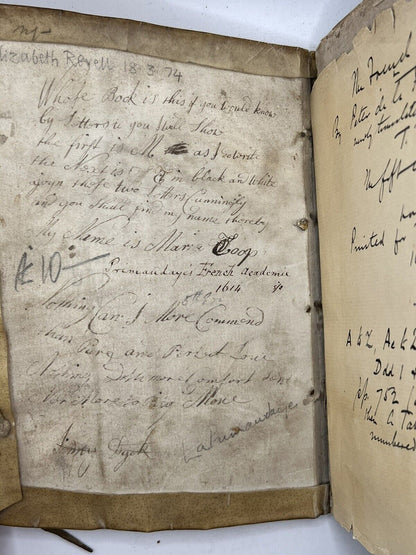 Elizabeth Reyell 18.3.74
Whose Book is this if you would know
by letters you shall Show
the first is M as I do write
the Next is T in black and white
Joyn those two letters Cunningly
and you shall find my name thereby
My Name is Maria Toop
£10
Primaudayes French Academie
1614
Nothing Can I More Commend
than Pure and Perfect Love
Nothing Doth more Comfort
James Dyek
La Primaudaye
The French
By Peter de la
newly translated
T.
The first
Printed for
16
A & Z, Aa & Z
Ddd 1 4
pp. 752
then a Ta
numbered